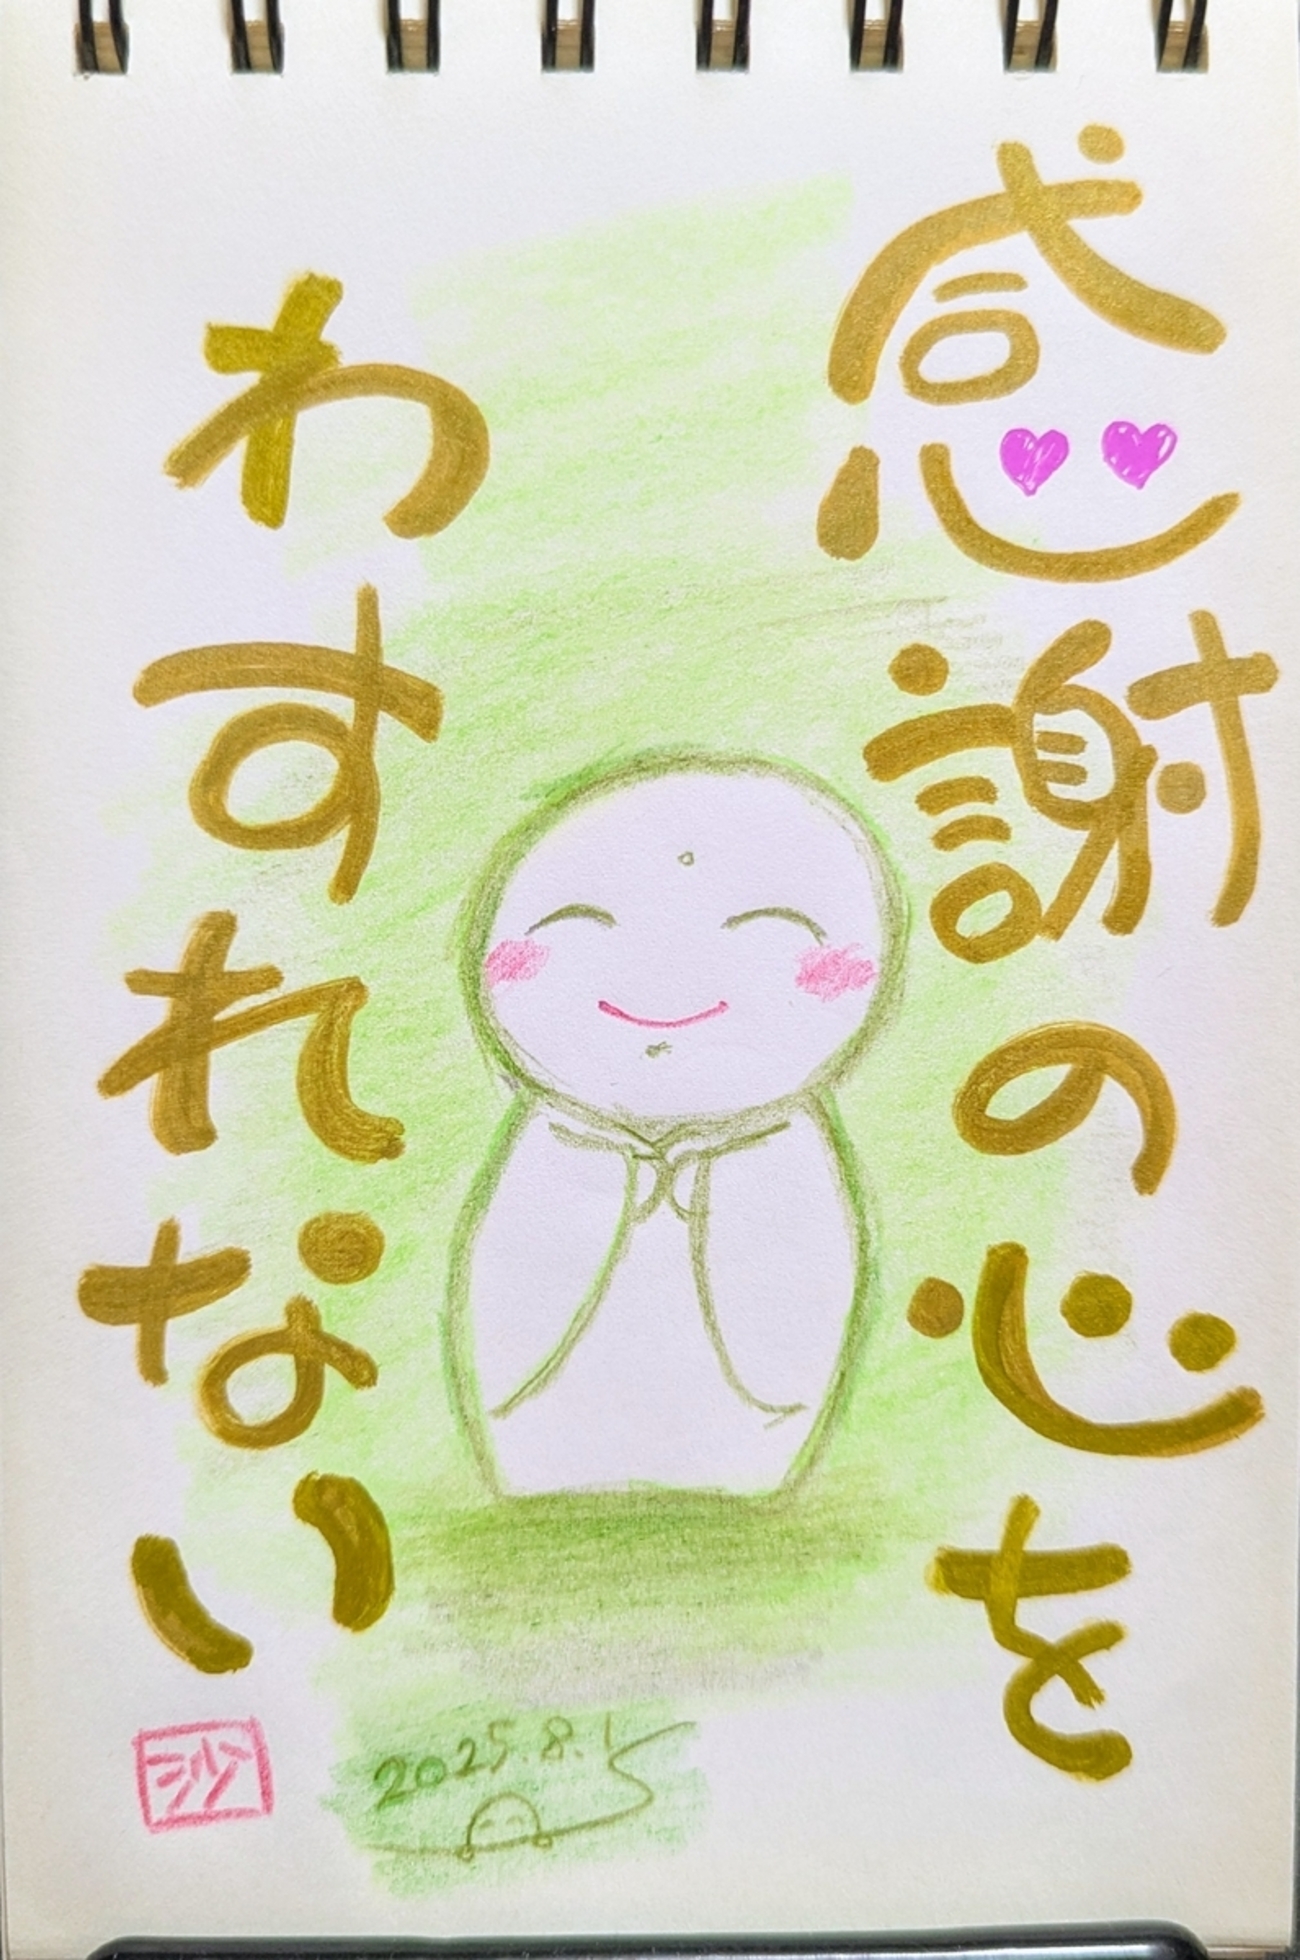 感謝の心を
わすれない
2025.8.15
沙